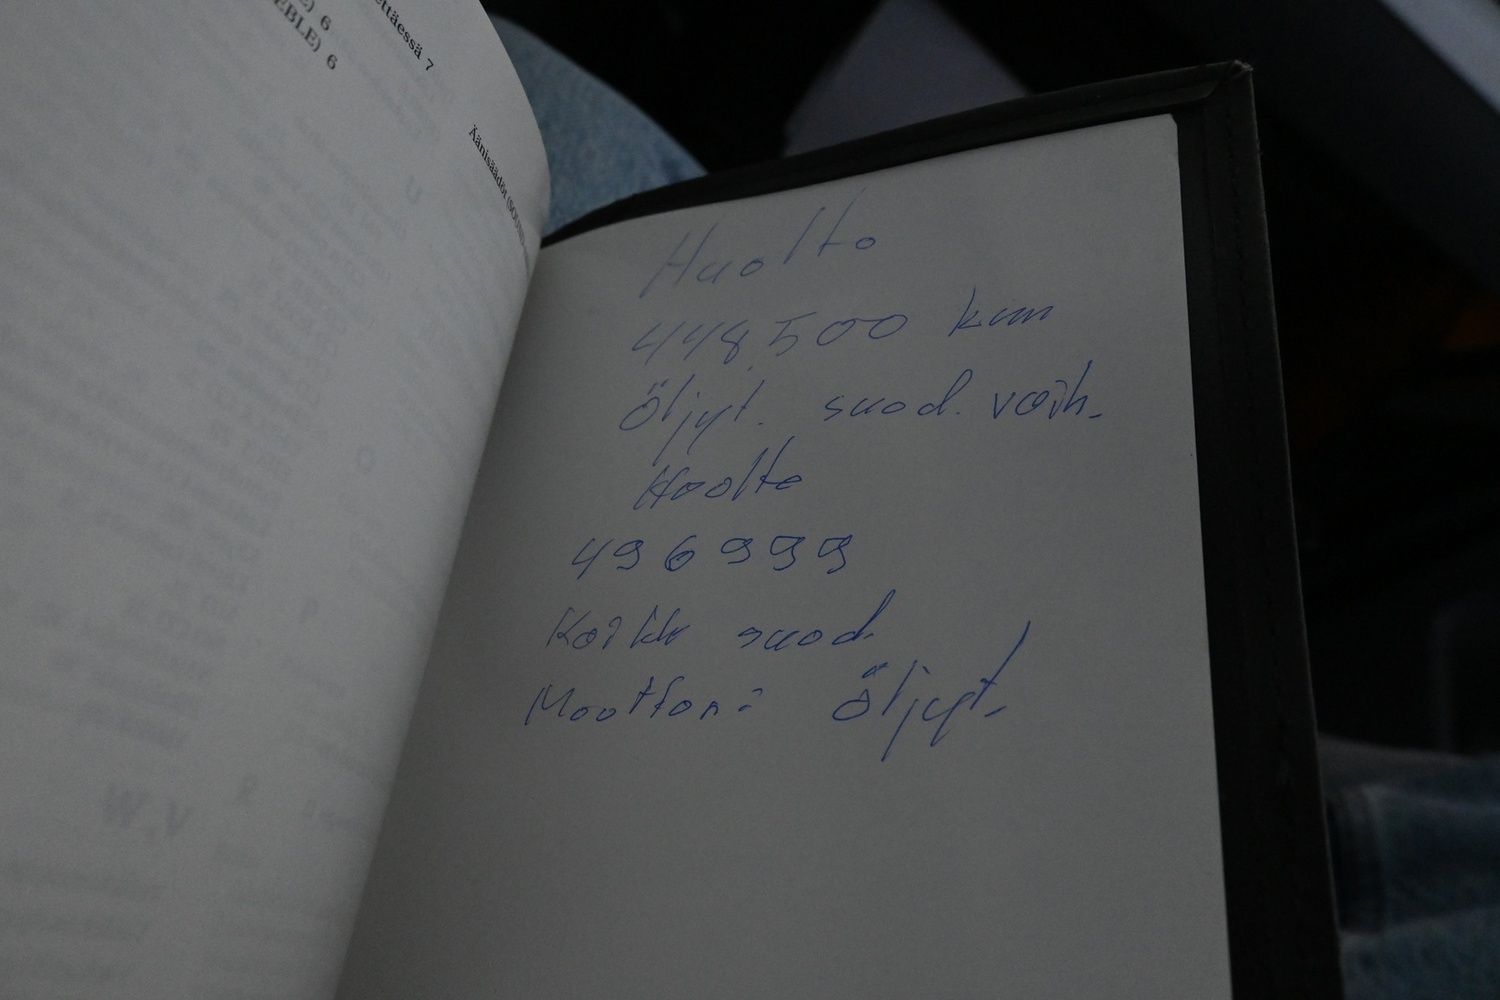 6
EBLE) 6
ettäessä 7
Äänisäädöt (SOUND)
Huolto
448,500 km
Öljyt. suod. vaih.
Huolto
496999
Kaikki suod.
Moottori öljyt.